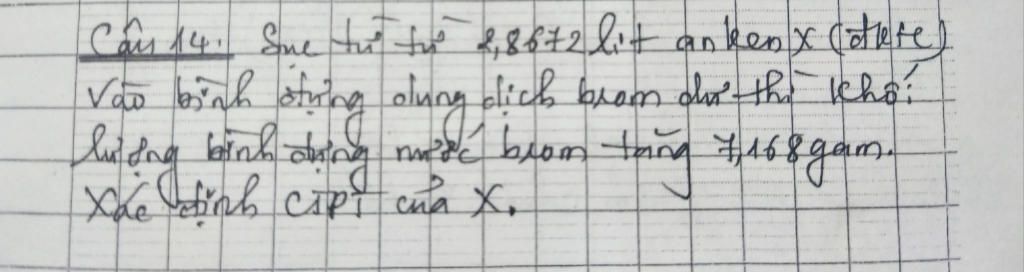 Câu 14. Sục từ từ 2,8672 lít anken X (đktc)
vào bình đựng dung dịch brom dư thì khối
lượng bình đựng nước brom tăng 7,168 gam.
Xác định CTPT của X.